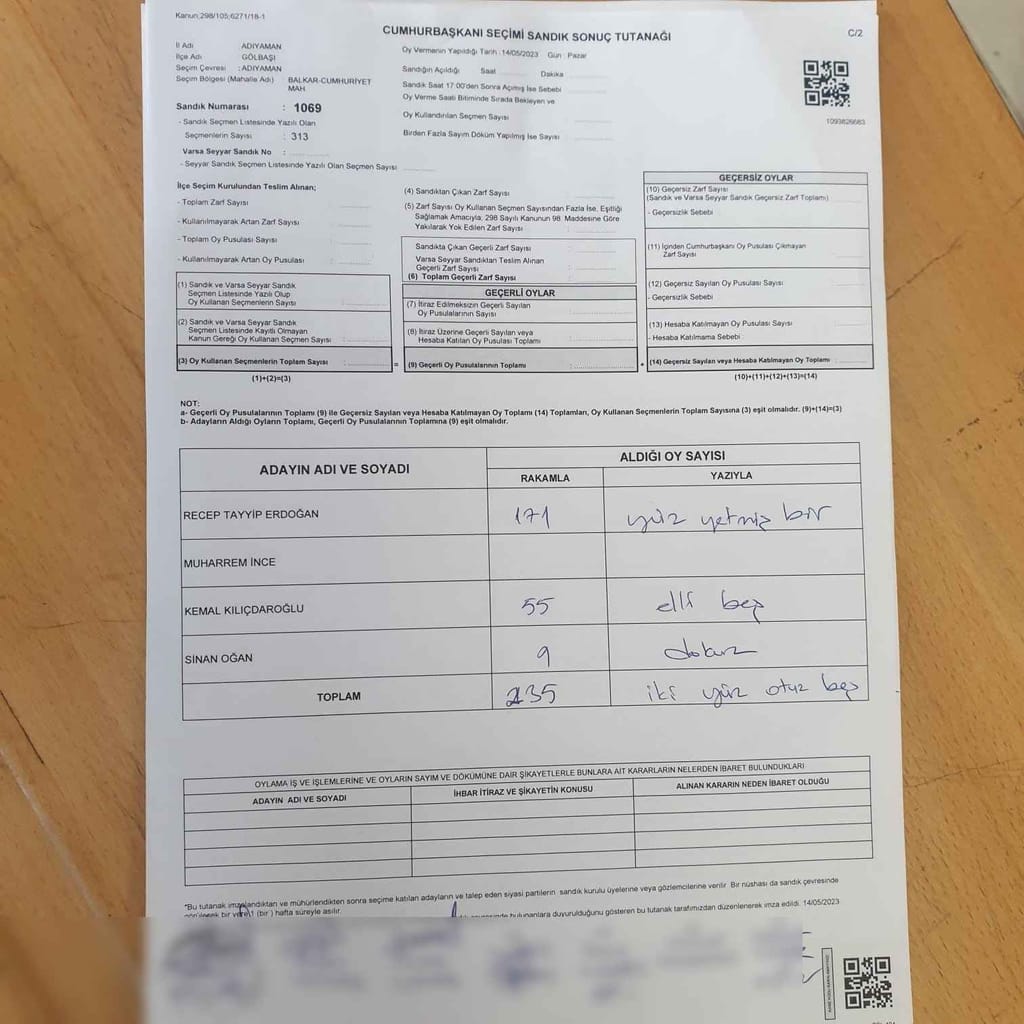 Kanun:298/105;6271/18-1
CUMHURBAŞKANI SEÇİMİ SANDIK SONUÇ TUTANAĞI
C/2
İl Adı : ADIYAMAN
İlçe Adı : GÖLBAŞI
Seçim Çevresi : ADIYAMAN
Seçim Bölgesi (Mahalle Adı) : BALKAR-CUMHURİYET
MAH
Sandık Numarası : 1069
- Sandık Seçmen Listesinde Yazılı Olan
Seçmenlerin Sayısı : 313
Varsa Seyyar Sandık No : ............
- Seyyar Sandık Seçmen Listesinde Yazılı Olan Seçmen Sayısı ............
Oy Vermenin Yapıldığı Tarih : 14/05/2023 Gün : Pazar
Sandığın Açıldığı Saat ............ Dakika ............
Sandık Saat 17:00'den Sonra Açılmış İse Sebebi ............
Oy Verme Saati Bitiminde Sırada Bekleyen ve
Oy Kullandırılan Seçmen Sayısı ............
Birden Fazla Sayım Döküm Yapılmış İse Sayısı ............
1093826663
İlçe Seçim Kurulundan Teslim Alınan;
- Toplam Zarf Sayısı : ............
- Kullanılmayarak Artan Zarf Sayısı : ............
- Toplam Oy Pusulası Sayısı : ............
- Kullanılmayarak Artan Oy Pusulası : ............
(1) Sandık ve Varsa Seyyar Sandık
Seçmen Listesinde Yazılı Olup
Oy Kullanan Seçmenlerin Sayısı : ............
(2) Sandık ve Varsa Seyyar Sandık
Seçmen Listesinde Kayıtlı Olmayan
Kanun Gereği Oy Kullanan Seçmen Sayısı : ............
(3) Oy Kullanan Seçmenlerin Toplam Sayısı : ............ =
(1)+(2)=(3)
(4) Sandıktan Çıkan Zarf Sayısı : ............
(5) Zarf Sayısı Oy Kullanan Seçmen Sayısından Fazla İse, Eşitliği
Sağlamak Amacıyla, 298 Sayılı Kanunun 98. Maddesine Göre
Yakılarak Yok Edilen Zarf Sayısı : ............
Sandıkta Çıkan Geçerli Zarf Sayısı : ............
Varsa Seyyar Sandıktan Teslim Alınan
Geçerli Zarf Sayısı : ............
(6) Toplam Geçerli Zarf Sayısı : ............
GEÇERLİ OYLAR
(7) İtiraz Edilmeksizin Geçerli Sayılan
Oy Pusulalarının Sayısı : ............
(8) İtiraz Üzerine Geçerli Sayılan veya
Hesaba Katılan Oy Pusulası Toplamı : ............
(9) Geçerli Oy Pusulalarının Toplamı : ............ +
GEÇERSİZ OYLAR
(10) Geçersiz Zarf Sayısı
(Sandık ve Varsa Seyyar Sandık Geçersiz Zarf Toplamı) ............
- Geçersizlik Sebebi
(11) İçinden Cumhurbaşkanı Oy Pusulası Çıkmayan
Zarf Sayısı : ............
(12) Geçersiz Sayılan Oy Pusulası Sayısı : ............
- Geçersizlik Sebebi
(13) Hesaba Katılmayan Oy Pusulası Sayısı : ............
- Hesaba Katılmama Sebebi :
(14) Geçersiz Sayılan veya Hesaba Katılmayan Oy Toplamı ............
(10)+(11)+(12)+(13)=(14)
NOT:
a- Geçerli Oy Pusulalarının Toplamı (9) ile Geçersiz Sayılan veya Hesaba Katılmayan Oy Toplamı (14) Toplamları, Oy Kullanan Seçmenlerin Toplam Sayısına (3) eşit olmalıdır. (9)+(14)=(3)
b- Adayların Aldığı Oyların Toplamı, Geçerli Oy Pusulalarının Toplamına (9) eşit olmalıdır.
ADAYIN ADI VE SOYADI ALDIĞI OY SAYISI
RAKAMLA YAZIYLA
RECEP TAYYİP ERDOĞAN 171 yüz yetmiş bir
MUHARREM İNCE
KEMAL KILIÇDAROĞLU 55 elli beş
SİNAN OĞAN 9 dokuz
TOPLAM 235 iki yüz otuz beş
OYLAMA İŞ VE İŞLEMLERİNE VE OYLARIN SAYIM VE DÖKÜMÜNE DAİR ŞİKAYETLERLE BUNLARA AİT KARARLARIN NELERDEN İBARET BULUNDUKLARI
ADAYIN ADI VE SOYADI İHBAR İTİRAZ VE ŞİKAYETİN KONUSU ALINAN KARARIN NEDEN İBARET OLDUĞU
*Bu tutanak imzalandıktan ve mühürlendikten sonra seçime katılan adayların ve talep eden siyasi partilerin sandık kurulu üyelerine veya gözlemcilerine verilir. Bir nüshası da sandık çevresinde
görülecek bir yere 1 (bir ) hafta süreyle asılır. bulunanlara duyurulduğunu gösteren bu tutanak tarafımızdan düzenlenerek imza edildi. 14/05/2023